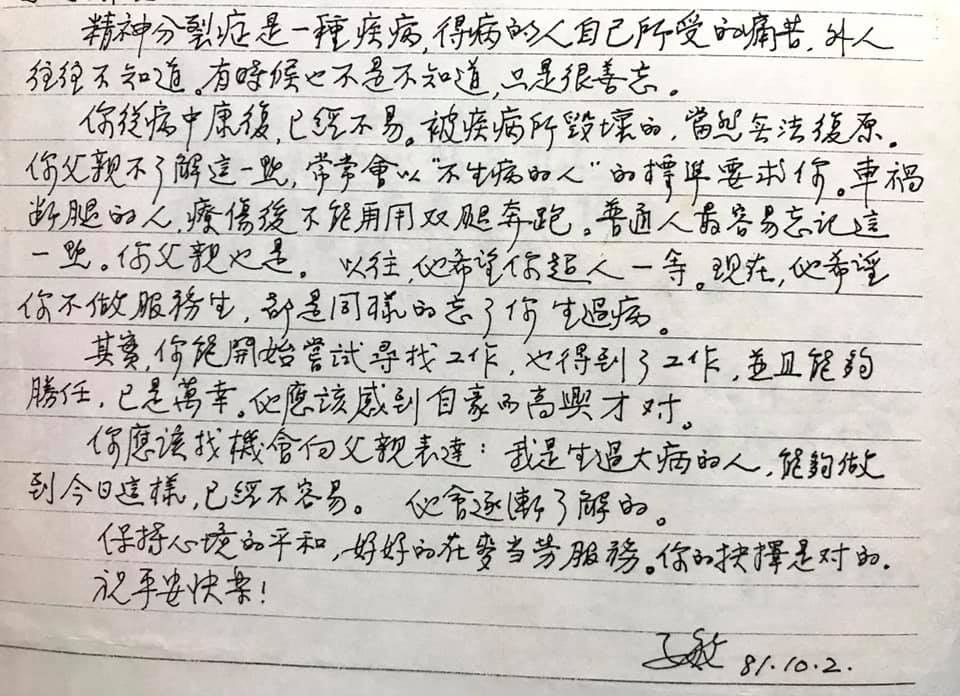 精神分裂症是一種疾病，得病的人自己所受的痛苦，外人
往往不知道。有時候也不是不知道，只是很善忘。
你從病中康復，已經不易。被疾病所毀壞的，當然無法復原。
你父親不了解這一點，常常會以“不生病的人”的標準要求你。車禍
斷腿的人，療傷後不能再用双腿奔跑。普通人最容易忘記這
一點。你父親也是。以往，他希望你超人一等。現在，他希望
你不做服務生，都是同樣的忘了你生過病。
其實，你能開始嘗試尋找工作，也得到了工作，並且能夠
勝任，已是萬幸。他應該感到自豪而高興才对。
你應該找機會向父親表達：我是生過大病的人，能夠做
到今日這樣，已經不容易。他會逐漸了解的。
保持心境的平和，好好的在麥当劳服務。你的抉擇是对的。
祝平安快樂！
子敏 81.10.2.